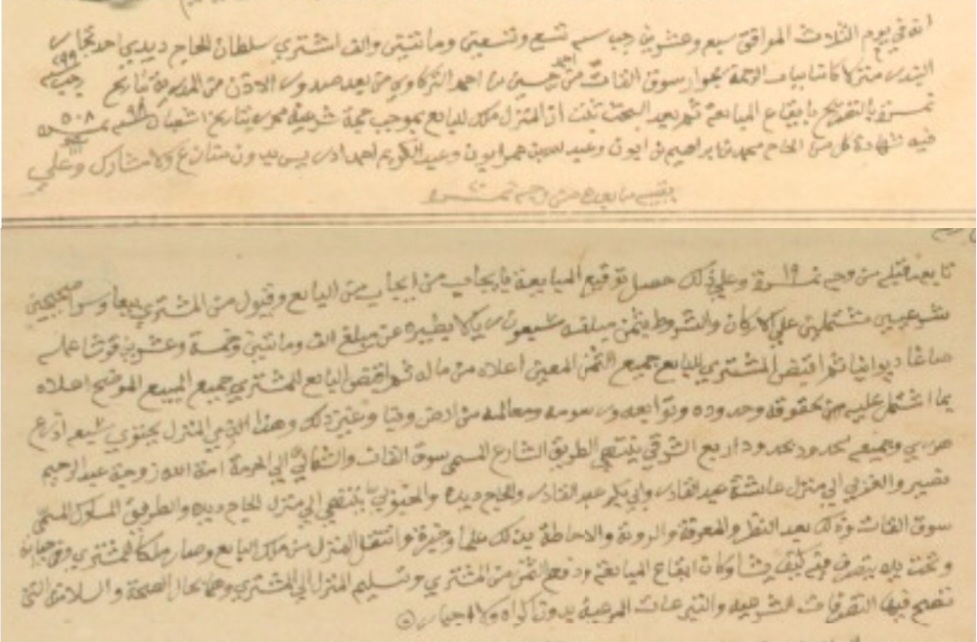 انه في يوم الثلاث الموافق سبع وعشرين رجب سنه تسع وتسعين ومائتين والف اشترى سلطان الحاج ديدي احد تجار
البندر منزلا كائنا بباب الرحمة بجوار سوق القات من حسين بن احمد التركاوي من بعد صدور الاذن من المديريه تاريخ رجب سنه ٩٩
نمرة بالتصريح بايقاع المبايعه ثم بعد البحث ثبت ان المنزل ملك للبايع بموجب حجة شرعية محرره بتاريخ شعبان سنه نمره ٥٠٨
فيه شهادة كل من الحاج محمد ابراهيم بن ايوب وعبد الله بن عمر ايوب وعبد الكريم احمد ادريس بدون منازع ولا مشارك وعلى
بقيته بما بعده من وجه نمره ٢٠
تابع ما قبله من وجه نمرة ١٩ وعلى ذلك حصل توقيع المبايعة بايجاب من البايع وقبول من المشتري بيعا وشرا صحيحين
شرعيين مشتملين على الاركان والشروط بثمن مبلغه تسعون ريالا طيره عن مبلغ الف ومائتين وخمسة وعشرين قرشا عمله
صاغا ديوانيا ثم اقبض المشتري للبايع جميع الثمن المعين اعلاه من ماله ثم اقبض البايع للمشتري جميع المبيع الموضح اعلاه
بما اشتمل عليه من حقوقه وحدوده وتوابعه ورسومه ومعالمه من ارض وبنا وغير ذلك وهذا المنزل بجنوبي سبعه اذرع
وجميعه محدود بحدود اربع الشرقي ينتهي الطريق الشارع المسمى سوق القات والشمالي الى الحرمة امنة الله زوجة عبد الرحيم
نصير والغربي الى منزل عائشة عبد القادر وابي بكر عبد القادر والحاج ديده والجنوبي ينتهي الى منزل الحاج ديده والطريق المسلوك المسمى
سوق القات وذلك بعد النظر والمعرفة والروية والاحاطة بذلك علما وخبرة وانتقل المنزل من ملك البايع وصار ملكا للمشتري وفي حيازته
وتحت يده يتصرف فيه كيف يشا وكان ايقاع المبايعه ودفع الثمن من المشتري وتسليم المنزل الى المشتري وهما بحال الصحة والسلامة التي
تصح فيها التصرفات الشرعيه والتبرعات المرعية بدون اكراه ولا اجبار